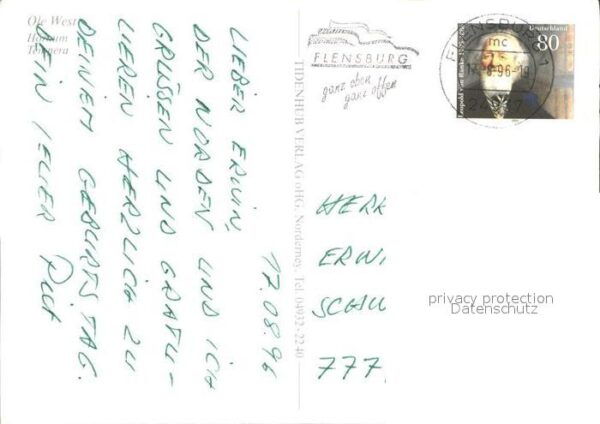 Ole West
Hafturm
Tempera
17.08.96
LIEBER ERWIN,
DER NORDEN UND ICH
GRÜSSEN UND GRATU-
LIEREN HERZLICH ZU
DEINEM GEBURTSTAG.
DEIN
TIDENHUB VERLAG oHG, Norderney, Tel. 04932-2240
FLENSBURG
ganz oben
ganz offen
FLENSBURG 1
mc
-8.96-18
Deutschland
80
HERR
ERWI
SCHU
777
privacy protection
Datenschutz